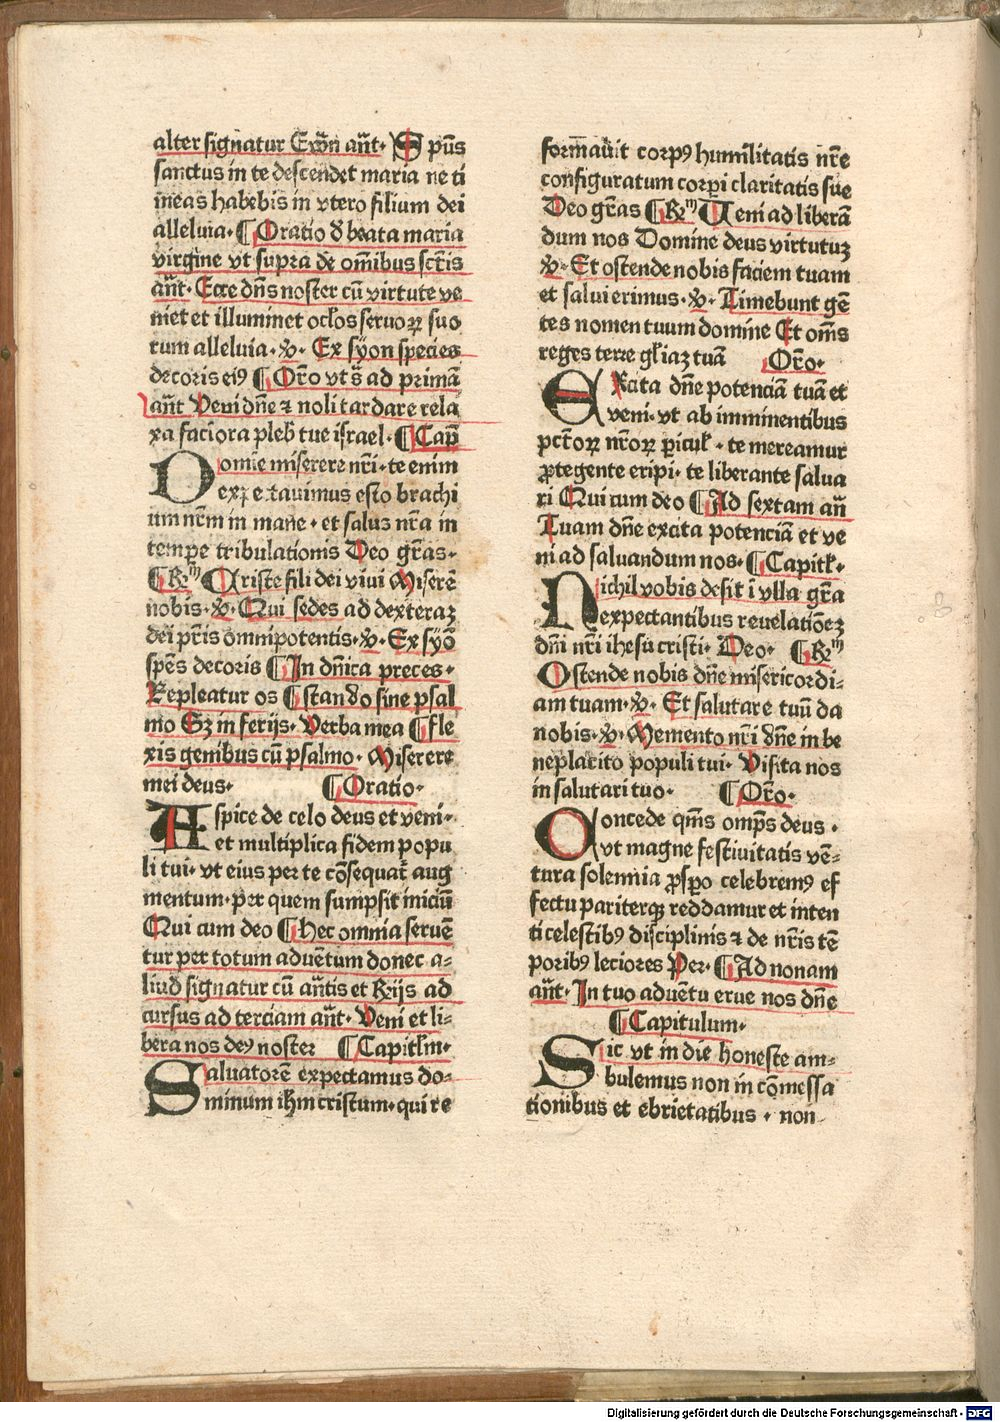 alter signatur Ewn̄ an̄t· Spūs
sanctus in te descendet maria ne ti
meas habebis in vtero filium dei
alleluia· ¶ Oratio d̄ beata maria
virgine vt supra de om̄ibus sctīs
an̄t· Ecce dn̄s noster cū virtute ve
niet et illuminet oclōs seruoꝝ suo
rum alleluia·℣· Ex syon species
decoris eiꝰ ¶ Orō vts̄ ad primā
an̄t Veni dn̄e ⁊ noli tardare rela
xa faciora pleb̄ tue israel· ¶ Cap̄
Domīe miserere nrī·te enim
expectauimus esto brachi
um nrm̄ in mane·et salus nrā in
tempe tribulationis Deo grās·
¶ Rm̄ Criste fili dei viui Miserē
nobis·℣· Qui sedes ad dexteraꝫ
dei prīs omnipotentis·℣· Ex syō
spēs decoris ¶ In dn̄ica preces·
Repleatur os ¶ stando sine psal
mo Sꝫ in ferijs· Verba mea ¶ fle
xis genibus cū psalmo· Miserere
mei deus· ¶ Oratio·
Aspice de celo deus et veni·
et multiplica fidem popu
li tui·vt eius per te cōsequat̄ aug
mentum·per quem sumpsit iniciū
Qui cum deo ¶ hec omnia seruē
tur per totum aduētum donec a⸗
liud signatur cū an̄tis et Rijs ad
cursus ad terciam an̄t· Veni et li⸗
bera nos deꝰ noster ¶ Capitlm̄·
Saluatorē expectamus do⸗
minum ihm̄ cristum·qui re
form̄auit corpꝰ humilitatis nrē
configuratum corpi claritatis sue
Deo grās ¶ Rm̄ Veni ad liberā
dum nos Domine deus virtutuꝫ
℣· Et ostende nobis faciem tuam
et salui erimus·℣· Timebunt gē
tes nomen tuum domine Et om̄s
reges terre gl̄iaꝫ tuā Orō·
EXcita dn̄e potenciā tuā et
veni·vt ab imminentibus
pctōꝝ nrōꝝ ꝑicul̄·te mereamur
ꝓtegente eripi·te liberante salua
ri Qui cum deo ¶ Ad sextam an̄
Tuam dn̄e excita potenciā et ve
ni ad saluandum nos· ¶ Capitl̄·
Nichil vobis desit ī vlla grā
expectantibus reuelatiōeꝫ
dn̄i nrī ihesu cristi· Deo· ¶ Rm̄
Ostende nobis dn̄e misericordi⸗
am tuam·℣· Et salutare tuū da
nobis·℣· Memento nrī dn̄e in be
neplacito populi tui· Visita nos
in salutari tuo· ¶ Orō·
Concede qm̄s omp̄s deus·
vt magne festiuitatis vē⸗
tura solennia ꝓsꝑo celebremꝰ ef
fectu pariterqꝫ reddamur et inten
ti celestibꝰ disciplinis ⁊ de nrīs tē
poribꝰ leciores Per· ¶ Ad nonam
an̄t· In tuo aduētu erue nos dn̄e
¶ Capitulum·
Sic vt in die honeste am⸗
bulemus non in cōmessa
tionibus et ebrietatibus·non
Digitalisierung gefördert durch die Deutsche Forschungsgemeinschaft - DFG